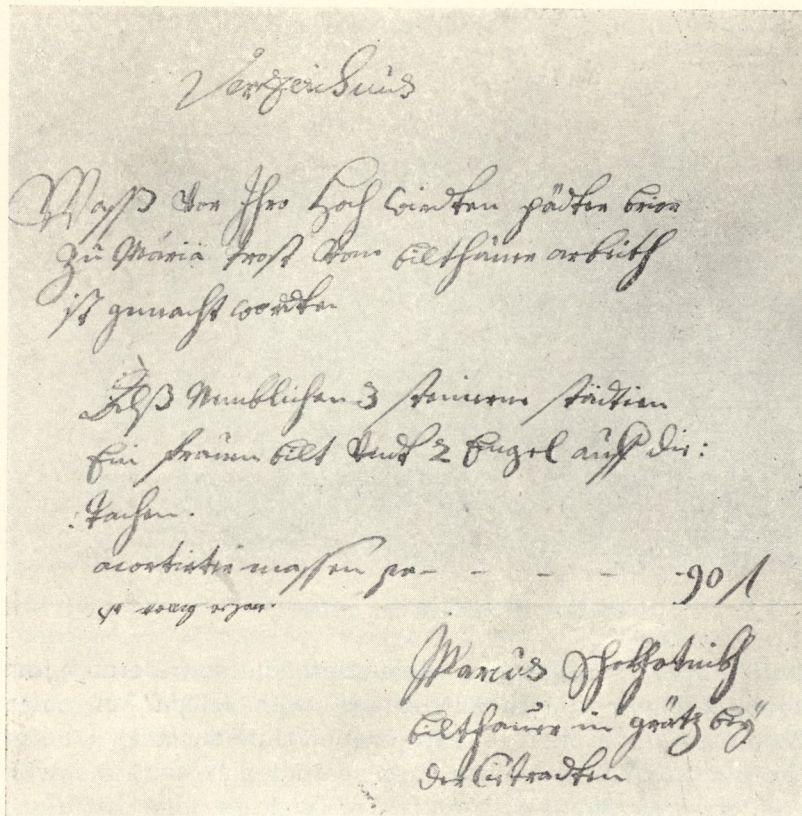 Verzeichnus
Wasß vor Ihro Hoch wirdten pädter brior
Zu Mariä Trost von bilthauer arbeith
ist gemacht wordten
Alß Nemblichen 3 steinerne städtien
Ein frauen bilt undt 2 Engel auff die:
tachen.
acortirter massen pr - - - - - 90 f
Marcus Schokotnikh
bilthauer in grätz bey
der